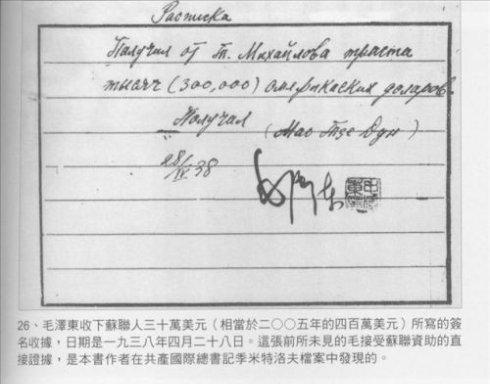 Расписка
Получил от т. Михайлова триста
тысяч (300,000) американских доларов.
Получил (Мао Тзе Дун)
28/IV 38
26、毛澤東收下蘇聯人三十萬美元（相當於二○○五年的四百萬美元）所寫的簽
名收據，日期是一九三八年四月二十八日。這張前所未見的毛接受蘇聯資助的直
接證據，是本書作者在共產國際總書記季米特洛夫檔案中發現的。